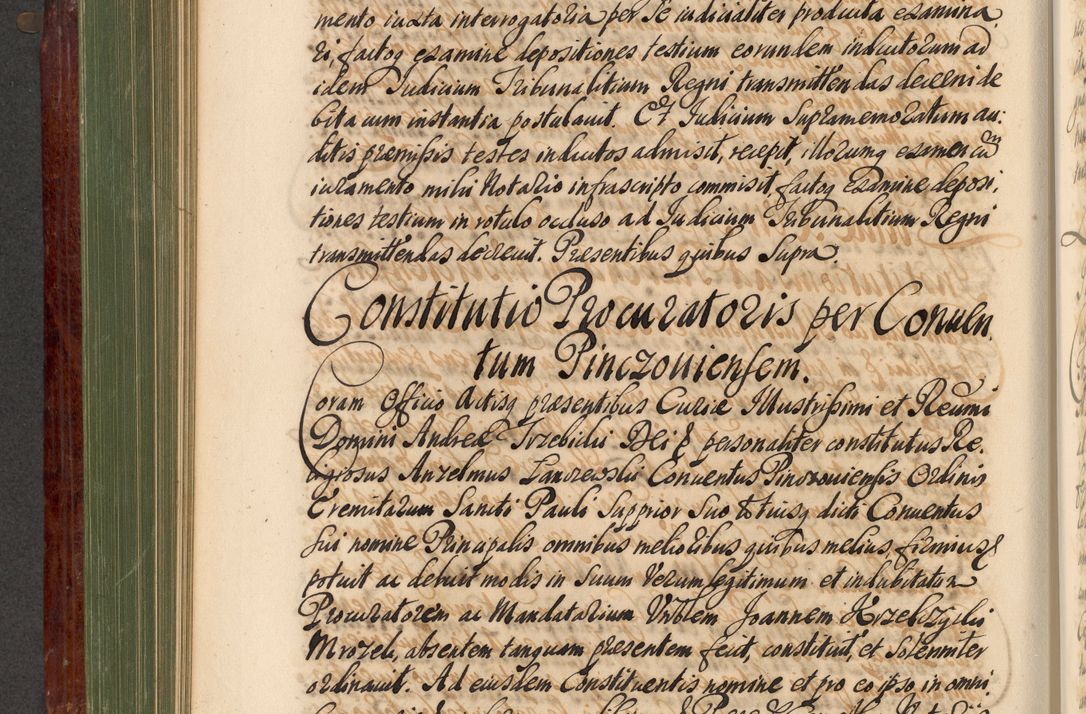 mento iuxta interrogatoria per se iudicialiter producta examina,
ri, factoq examine depositiones testium eorundem inductorum ad
idem Iudicium Tribunalitium Regni transmittendas decerni de
bita cum instantia postulauit. Et Iudicium Supramemoratum au,
ditis præmissis testes inductos admisit, recepit, illorumq examen cū
iuramento mihi Notario infrascripto commisit, factoq Examine deposi,
tiones testium in rotulo occluso ad Iudicium Tribunalitium Regni
transmittendas decreuit. Præsentibus quibus Supra.
Constitutio Procuratoris per Conuen,
tum Pinczouiensem.
Coram Officio Actisq præsentibus Curiæ Illustrissimi et Reumi
Domini Andreæ Trzebicki Dei & personaliter constitutus Re,
ligiosus Anzelmus Conuentus Pinczouiensis Ordinis
Eremitarum Sancti Pauli Supprior Suo totiusq dicti Conuentus
sui nomine Principalis omnibus melioribus quibus melius, firmius &
potuit ac debuit modis in Suum Verum legitimum et indubitatum
Procuratorem ac Mandatarium Vrblem Joannem
Mrozek, absentem tanquam præsentem fecit, constituit, et Solenniter
ordinauit. Ad eiusdem Constituentis nomine et pro eo ipso in omni,